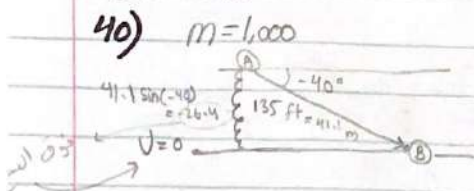 40) m=1,000
A
-40°
41.1 sin(-40)
= -26.4
135 ft = 41.1 m
U=0
B